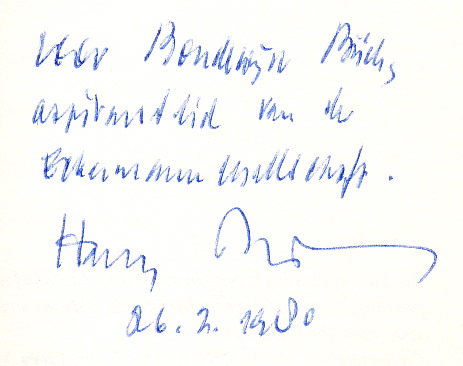 voor Boudewijn Büch,
aspirantlid van de
Eckermann Gesellschaft.
Harry
26.2.1980